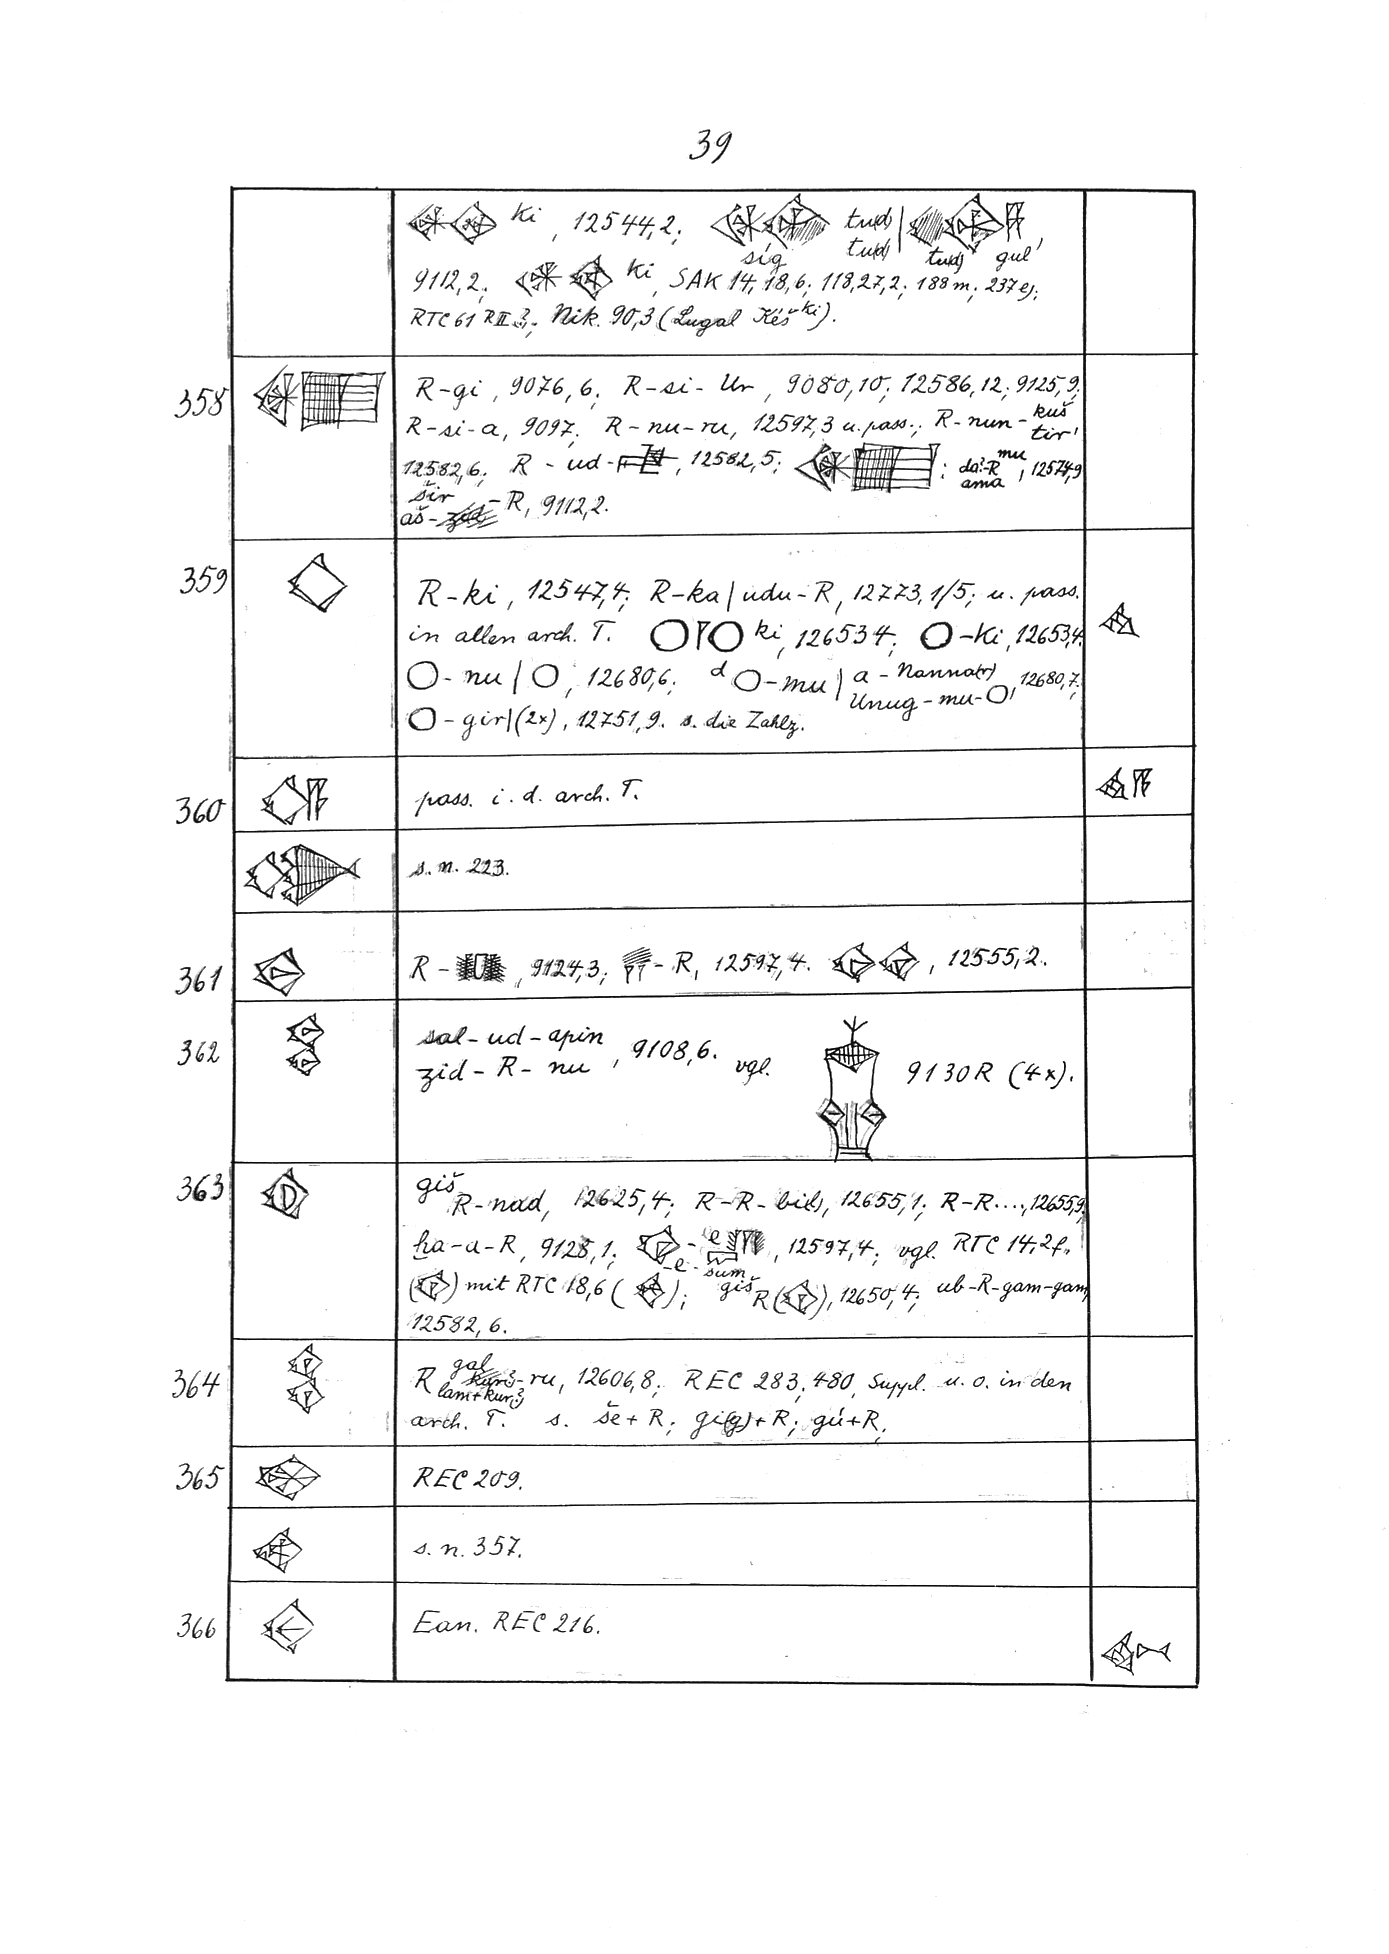 39
ki, 12544,2; sig tu(d) tu(d) | tu(d) gul,
9112,2; ki, SAK 14,18,6; 118,27,2; 188 m; 237 e);
RTC 61 R II 3; Nik. 90,3 (Lugal Kéš ki).
358 R-gi, 9076,6; R-si-Ur, 9080,10; 12586,12; 9125,9;
R-si-a, 9097; R-nu-ru, 12597,3 u. pass.; R-nun-kuš tir,
12582,6; R-ud-, 12582,5; : da?-R mu ama, 12574,9
šir aš- -R, 9112,2.
359 R-ki, 12547,4; R-ka | udu-R, 12773,1/5; u. pass.
in allen arch. T. ki, 12653 4; -Ki, 12653,4
-nu |, 12680,6; d -mu | a-Nanna(r) Unug-mu-, 12680,7;
-gir | (2x), 12751,9. s. die Zahlz.
360 pass. i. d. arch. T.
s. n. 223.
361 R-, 9124,3; -R, 12597,4. , 12555,2.
362 sal-ud-apin
zid-R-nu, 9108,6. vgl. 9130 R (4x).
363 giš R-nad, 12625,4; R-R-bi(l), 12655,1; R-R...., 12655,9;
ḫa-a-R, 9128,1; -e -e-sum, 12597,4; vgl. RTC 14,2 f.
( ) mit RTC 18,6 ( ); giš R ( ), 12650,4; ub-R-gam-gam,
12582,6.
364 R gal lam+kur? -ru, 12606,8; REC 283; 480, Suppl. u. o. in den
arch. T. s. še+R; gi(g)+R; gú+R,
365 REC 209.
s. n. 357.
366 Ean. REC 216.